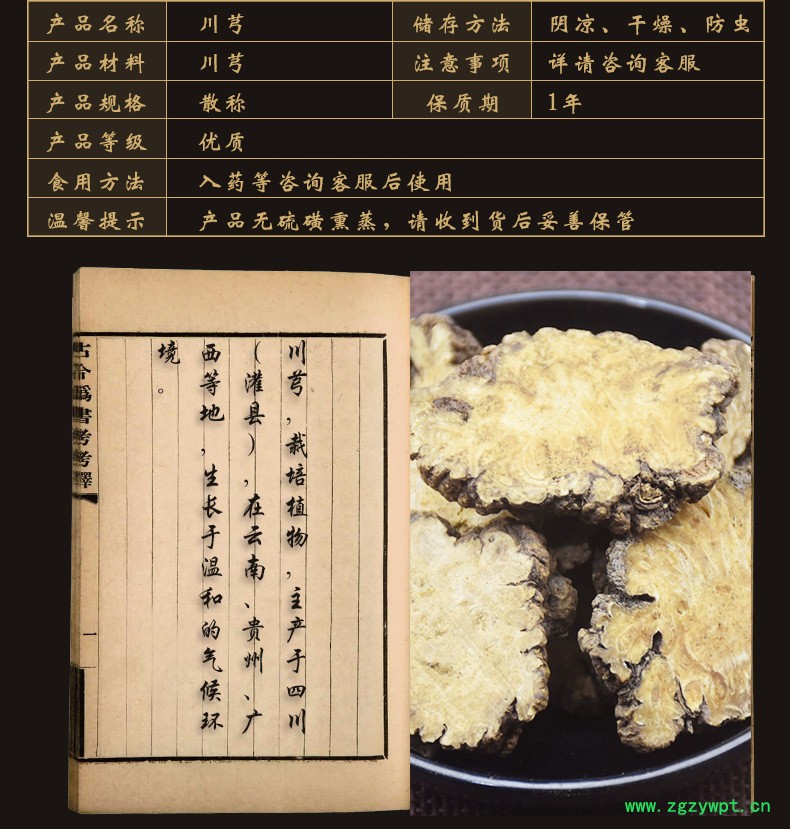 产品名称 川芎 储存方法 阴凉、干燥、防虫
产品材料 川芎 注意事项 详请咨询客服
产品规格 散称 保质期 1年
产品等级 优质
食用方法 入药等咨询客服后使用
温馨提示 产品无硫磺熏蒸，请收到货后妥善保管
川芎，栽培植物，主产于四川
（灌县），在云南、贵州、广
西等地，生长于温和的气候环
境。
古今伪書考考釋
一
www.zgzywpt.cn